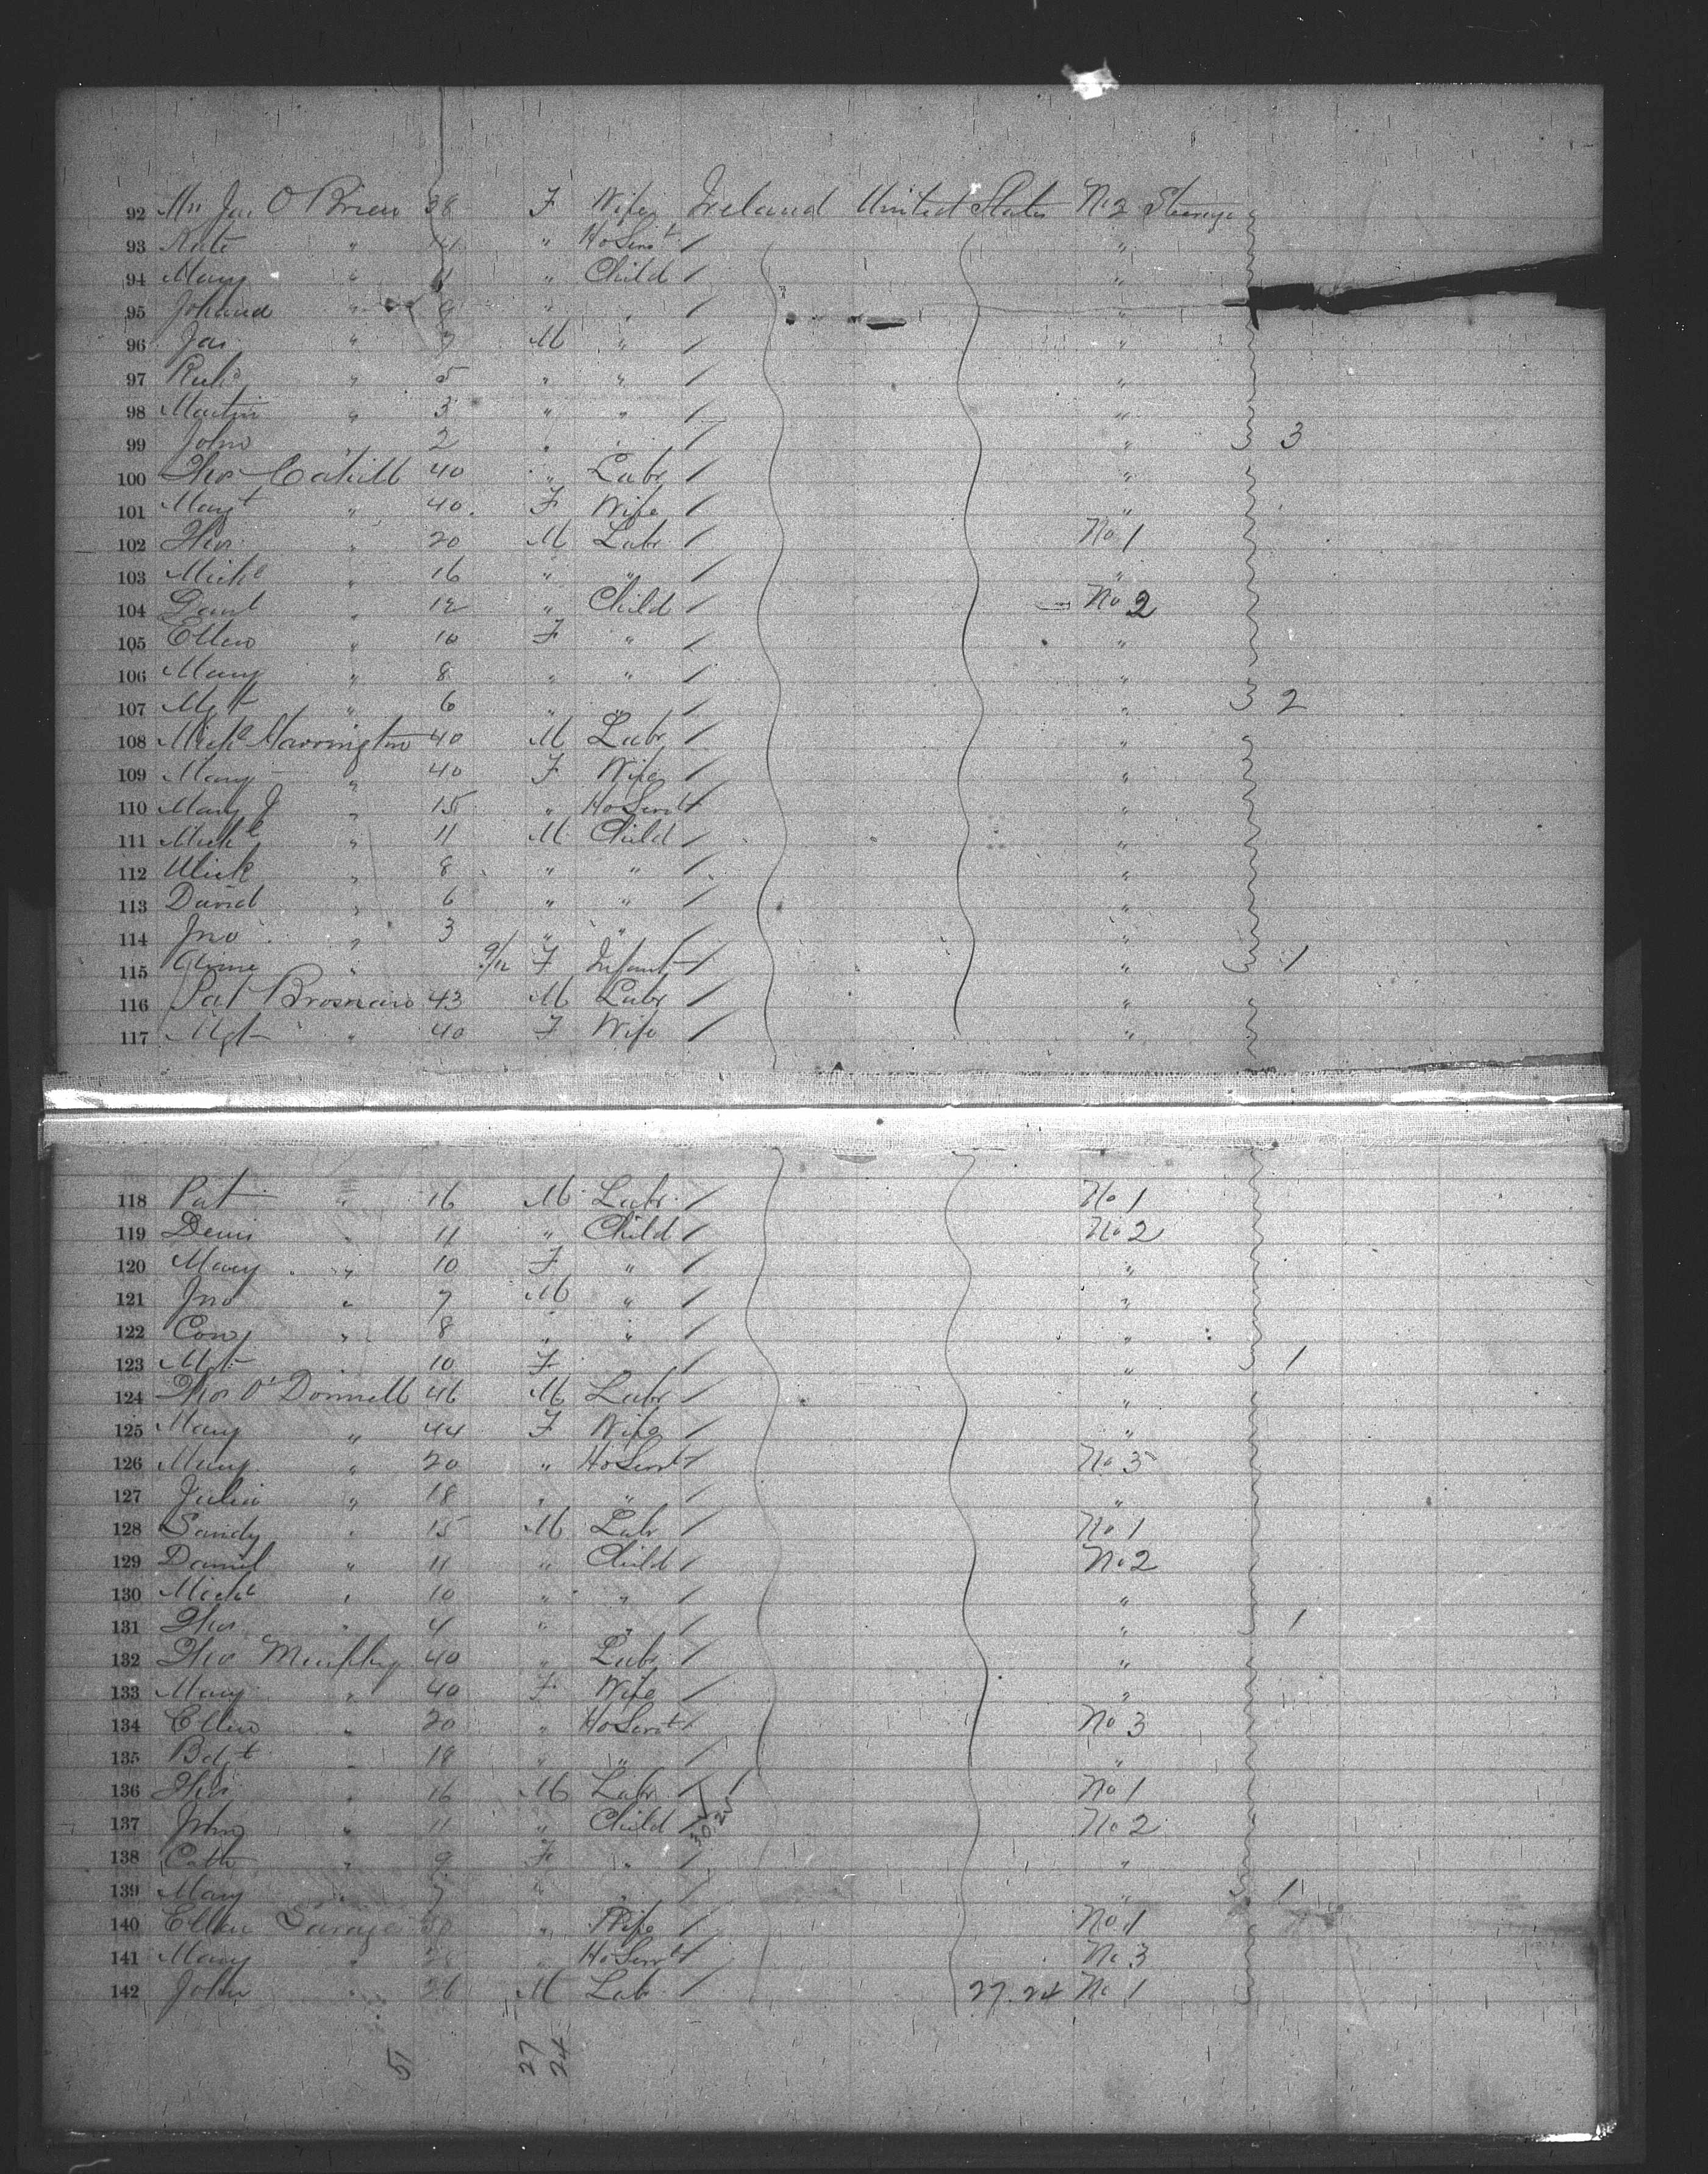 92 Mrs Jas O'Brien 38 F Wife Ireland United States No 2 Steerage
93 Kate " " Ho Servt / "
94 Mary " 11 " Child / "
95 Johana " 9 " " / "
96 Jas " 7 M " / "
97 Richd " 5 " " / "
98 Martin " 3 " " / "
99 John " 2 " " / " 3
100 Thos Cahill 40 " Labr / "
101 Margt " 40 F Wife / "
102 Thos " 20 M Labr / No 1
103 Michl " 16 " " / "
104 " 12 " Child / No 2
105 Ellen " 10 F " / "
106 Mary " 8 " " / "
107 Mgt " 6 " " / " 2
108 Michl 40 M Labr / "
109 Mary " 40 F Wife / "
110 Mary J " 15 " Ho Servt / "
111 Michl " 11 M Child / "
112 Ulick " 8 " " / "
113 David " 6 " " / "
114 Jno " 3 " " / "
115 Anne " 9/12 F Infant / " 1
116 Pat Brosnan 43 M Labr / "
117 Mgt " 40 F Wife / "
118 Pat " 16 M Labr / No 1
119 Denis " 11 " Child / No 2
120 Mary " 10 F " / "
121 Jno " 7 M " / "
122 Con " 8 " " / "
123 Mgt " 10 F / " 1
124 Thos O'Donnell 46 M Labr / "
125 Mary " 44 F Wife / "
126 Mary " 20 " Ho Servt / No 3
127 Julia " 18 " " / "
128 Sandy " 15 M Labr / No 1
129 Daniel " 11 " Child / No 2
130 Michl " 10 " " / "
131 Thos " 4 " " / " 1
132 Thos Murphy 40 " Labr / "
133 Mary " 40 F Wife / "
134 Ellen " 20 " Ho Servt / No 3
135 Bdgt " 18 " " / "
136 Thos " 16 M Labr / No 1
137 John " 11 " Child / No 2
138 Cath " 9 F " / "
139 Mary " 7 " " / " 1
140 Ellen Savage " Wife / No 1
141 Mary " " Ho Servt / No 3
142 John " 26 M Lab / 27.24 No 1
51 27 24